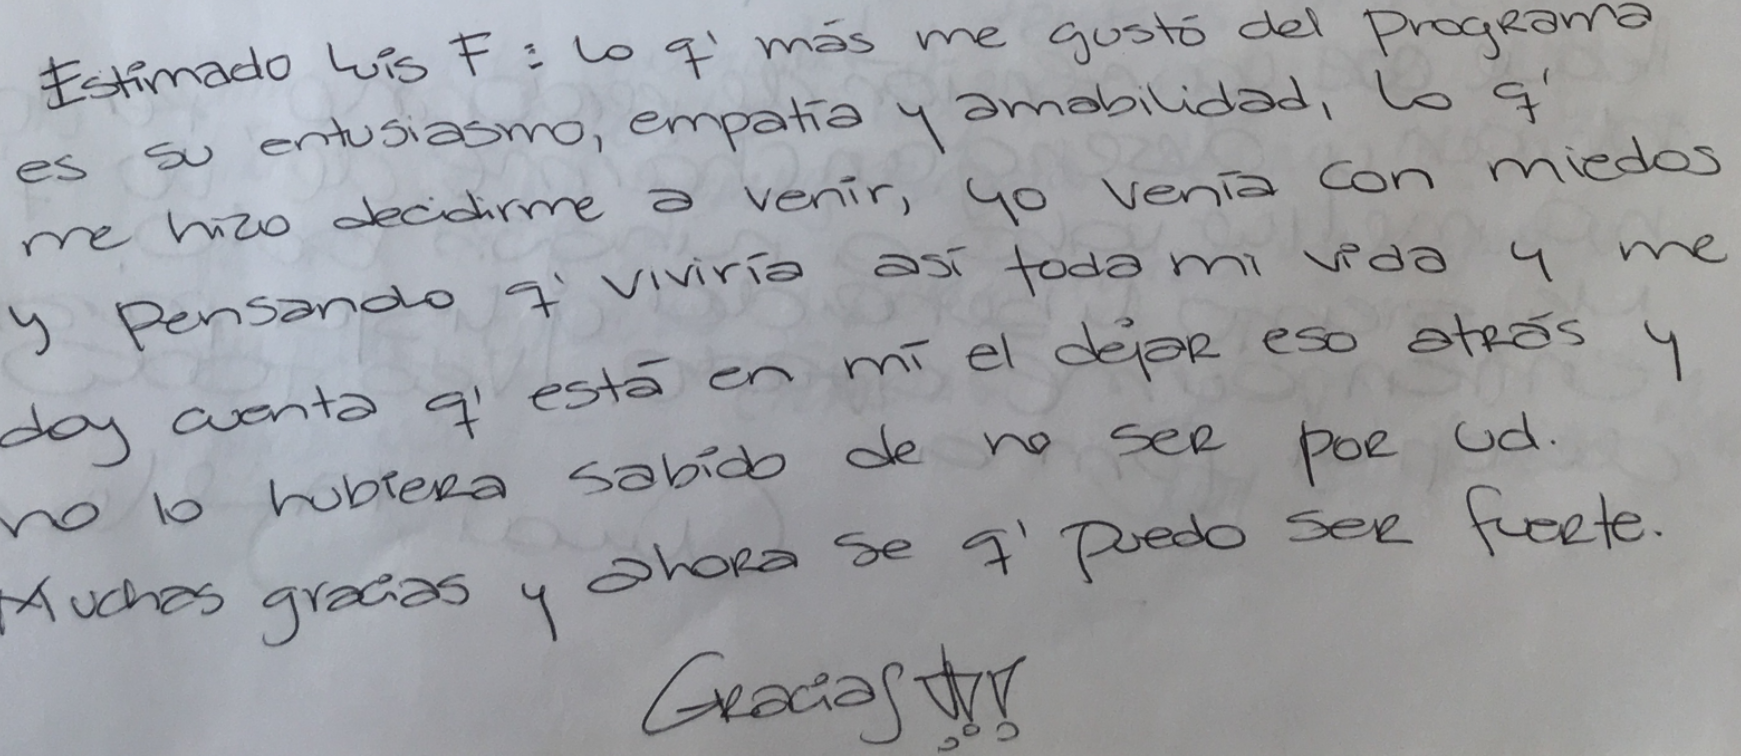 Estimado Luis F : Lo q' más me gustó del programa
es su entusiasmo, empatía y amabilidad, lo q'
me hizo decidirme a venir, yo venía con miedos
y pensando q' viviría así toda mi vida y me
doy cuenta q' está en mí el dejar eso atrás y
no lo hubiera sabido de no ser por ud.
Muchas gracias y ahora se q' puedo ser fuerte.
Gracias!!!